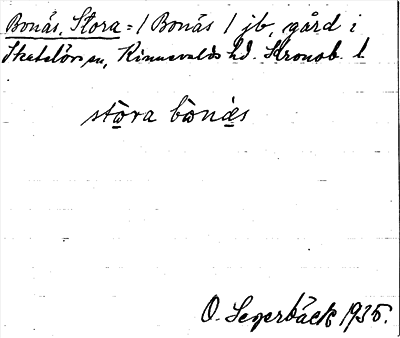 Bonäs, Stora = / Bonäs / jb, gård i
Skatelövs sn, Kinnevalds hd. Kronob. l
stora bonäs
O. Segerbäck 1935.